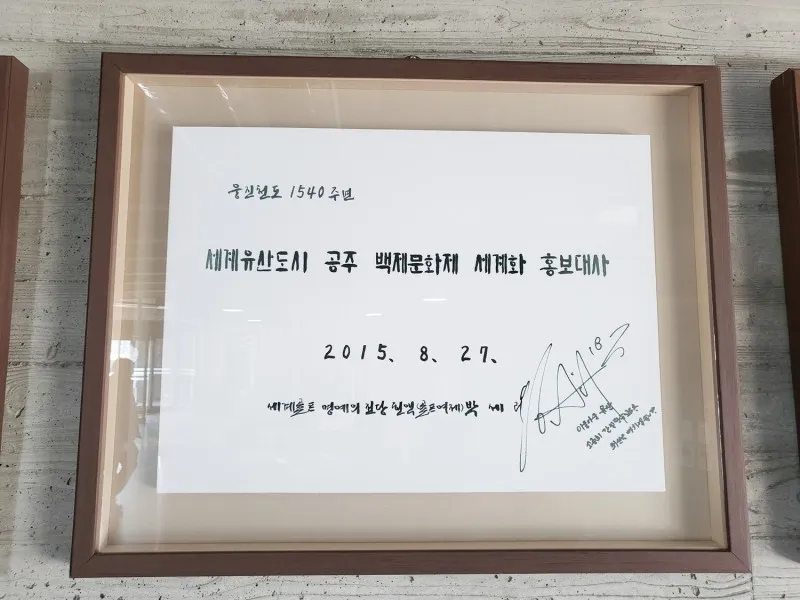 웅진천도 1540 주년
세계유산도시 공주 백제문화제 세계화 홍보대사
2015. 8. 27.
세계골프 명예의 전당 입액(골프여제) 박 세 리
18